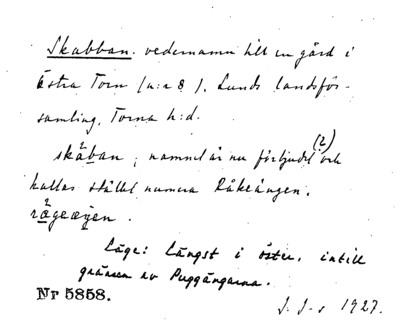 Skabban. vedernamn till en gård i
Östra Torn (n:r 8), Lunds landsför-
samling, Torna h:d.
skäban; namnet är nu förbjudet (?) och
kallas stället numera Råkeängen.
rågeäŋen.
Läge: Längst i öster, intill
gränsen av Puggängarna.
Nr 5858.
J. J-s 1927.